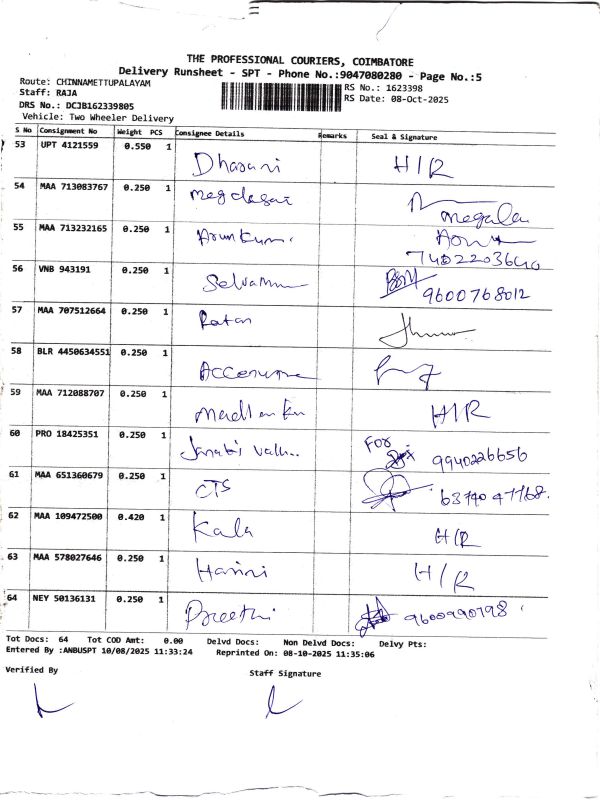 THE PROFESSIONAL COURIERS, COIMBATORE
Delivery Runsheet - SPT - Phone No.:9047080280 - Page No.:5
Route: CHINNAMETTUPALAYAM
RS No.: 1623398
Staff: RAJA
RS Date: 08-Oct-2025
DRS No.: DCJB162339805
Vehicle: Two Wheeler Delivery
S No Consignment No Weight PCS Consignee Details Remarks Seal & Signature
53 UPT 4121559 0.550 1 Dharani H/R
54 MAA 713083767 0.250 1 megala
55 MAA 713232165 0.250 1 Arunkumar
56 VNB 943191 0.250 1 9600768012
57 MAA 707512664 0.250 1 Ratan
58 BLR 4450634551 0.250 1
59 MAA 712088707 0.250 1 H/R
60 PRO 18425351 0.250 1 For 9940226656
61 MAA 651360679 0.250 1 CTS
62 MAA 109472500 0.420 1 Kala H/R
63 MAA 578027646 0.250 1 Harini H/R
64 NEY 50136131 0.250 1 Preethi 9600990798
Tot Docs: 64 Tot COD Amt: 0.00 Delvd Docs: Non Delvd Docs: Delvy Pts:
Entered By :ANBUSPT 10/08/2025 11:33:24 Reprinted On: 08-10-2025 11:35:06
Verified By Staff Signature